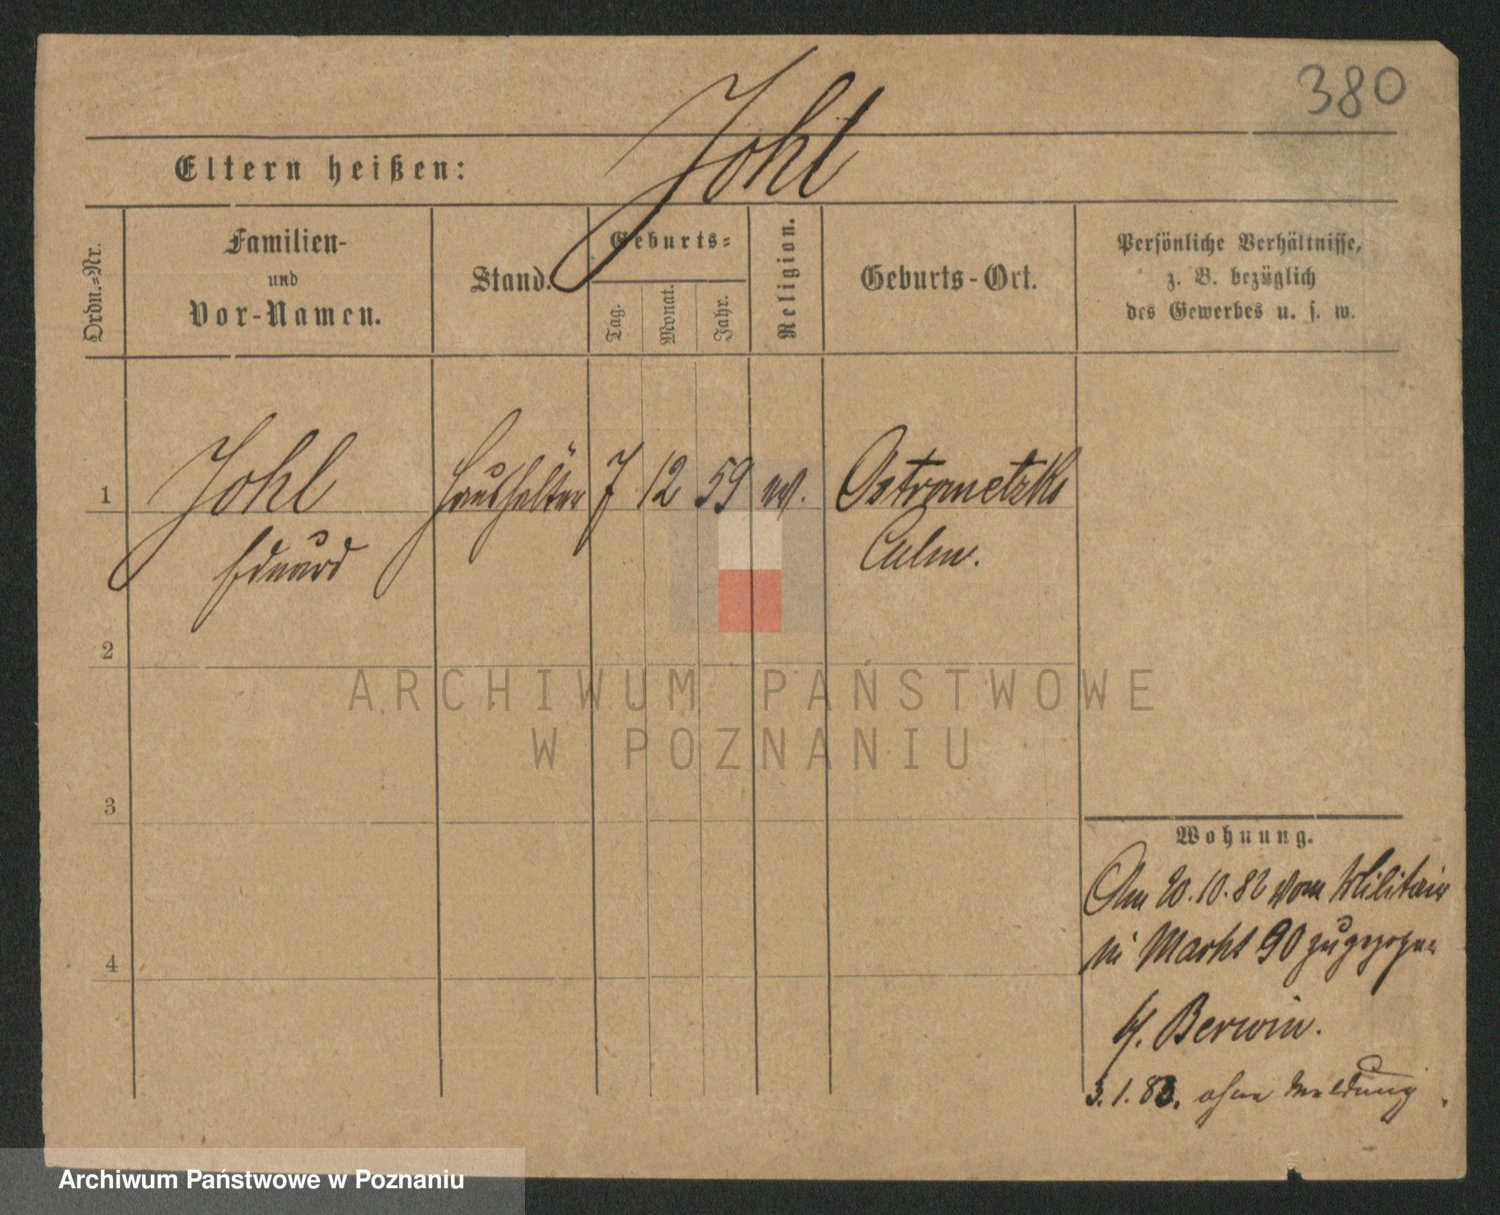 380
Johl
Eltern heißen:
Ordn.-Nr.
Familien-
und
Vor-Namen.
Stand.
Geburts-
Tag.
Monat.
Jahr.
Religion.
Geburts-Ort.
Persönliche Verhältnisse,
z. B. bezüglich
des Gewerbes u. s. w.
1 Johl Haushälter 7 12 59 ev. Ostrometzko
Eduard Culm.
2
3
4
Wohnung.
Am 20.10.82 vom Militair
in Markt 90 zugezogen
b/. Berwin.
3.1.83. ohne Meldung.
ARCHIWUM PAŃSTWOWE
W POZNANIU
Archiwum Państwowe w Poznaniu